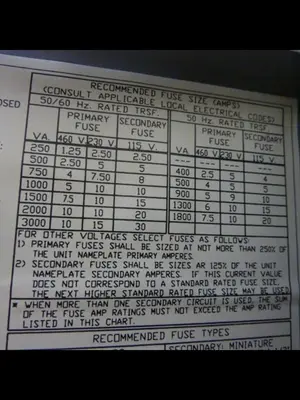 RECOMMENDED FUSE SIZE (AMPS)
(CONSULT APPLICABLE LOCAL ELECTRICAL CODES)
50/60 Hz. RATED TRSF. 50 Hz. RATED TRSF.
PRIMARY FUSE SECONDARY FUSE PRIMARY FUSE SECONDARY FUSE
VA. 460 V 230 V 115 V. VA. 460 V 230 V 115 V.
250 1.25 2.50 2.50 --- --- --- ---
500 2.50 5 5 400 2.5 5 5
750 4 7.50 8 500 4 5 5
1000 5 10 10 900 5 9 10
1500 7.5 10 15 1300 6 10 15
2000 10 10 20 1800 7.5 10 20
3000 10 15 30
FOR OTHER VOLTAGES SELECT FUSES AS FOLLOWS:
1) PRIMARY FUSES SHALL BE SIZED AT NOT MORE THAN 250% OF
THE UNIT NAMEPLATE PRIMARY AMPERES.
2) SECONDARY FUSES SHALL BE SIZES AR 125% OF THE UNIT
NAMEPLATE SECONDARY AMPERES. IF THIS CURRENT VALUE
DOES NOT CORRESPOND TO A STANDARD RATED FUSE SIZE,
THE NEXT HIGHER STANDARD RATED FUSE SIZE MAY BE USED.
* WHEN MORE THAN ONE SECONDARY CIRCUIT IS USED, THE SUM
OF THE FUSE AMP RATINGS MUST NOT EXCEED THE AMP RATING
LISTED IN THIS CHART.
RECOMMENDED FUSE TYPES
SECONDARY: MINIATURE